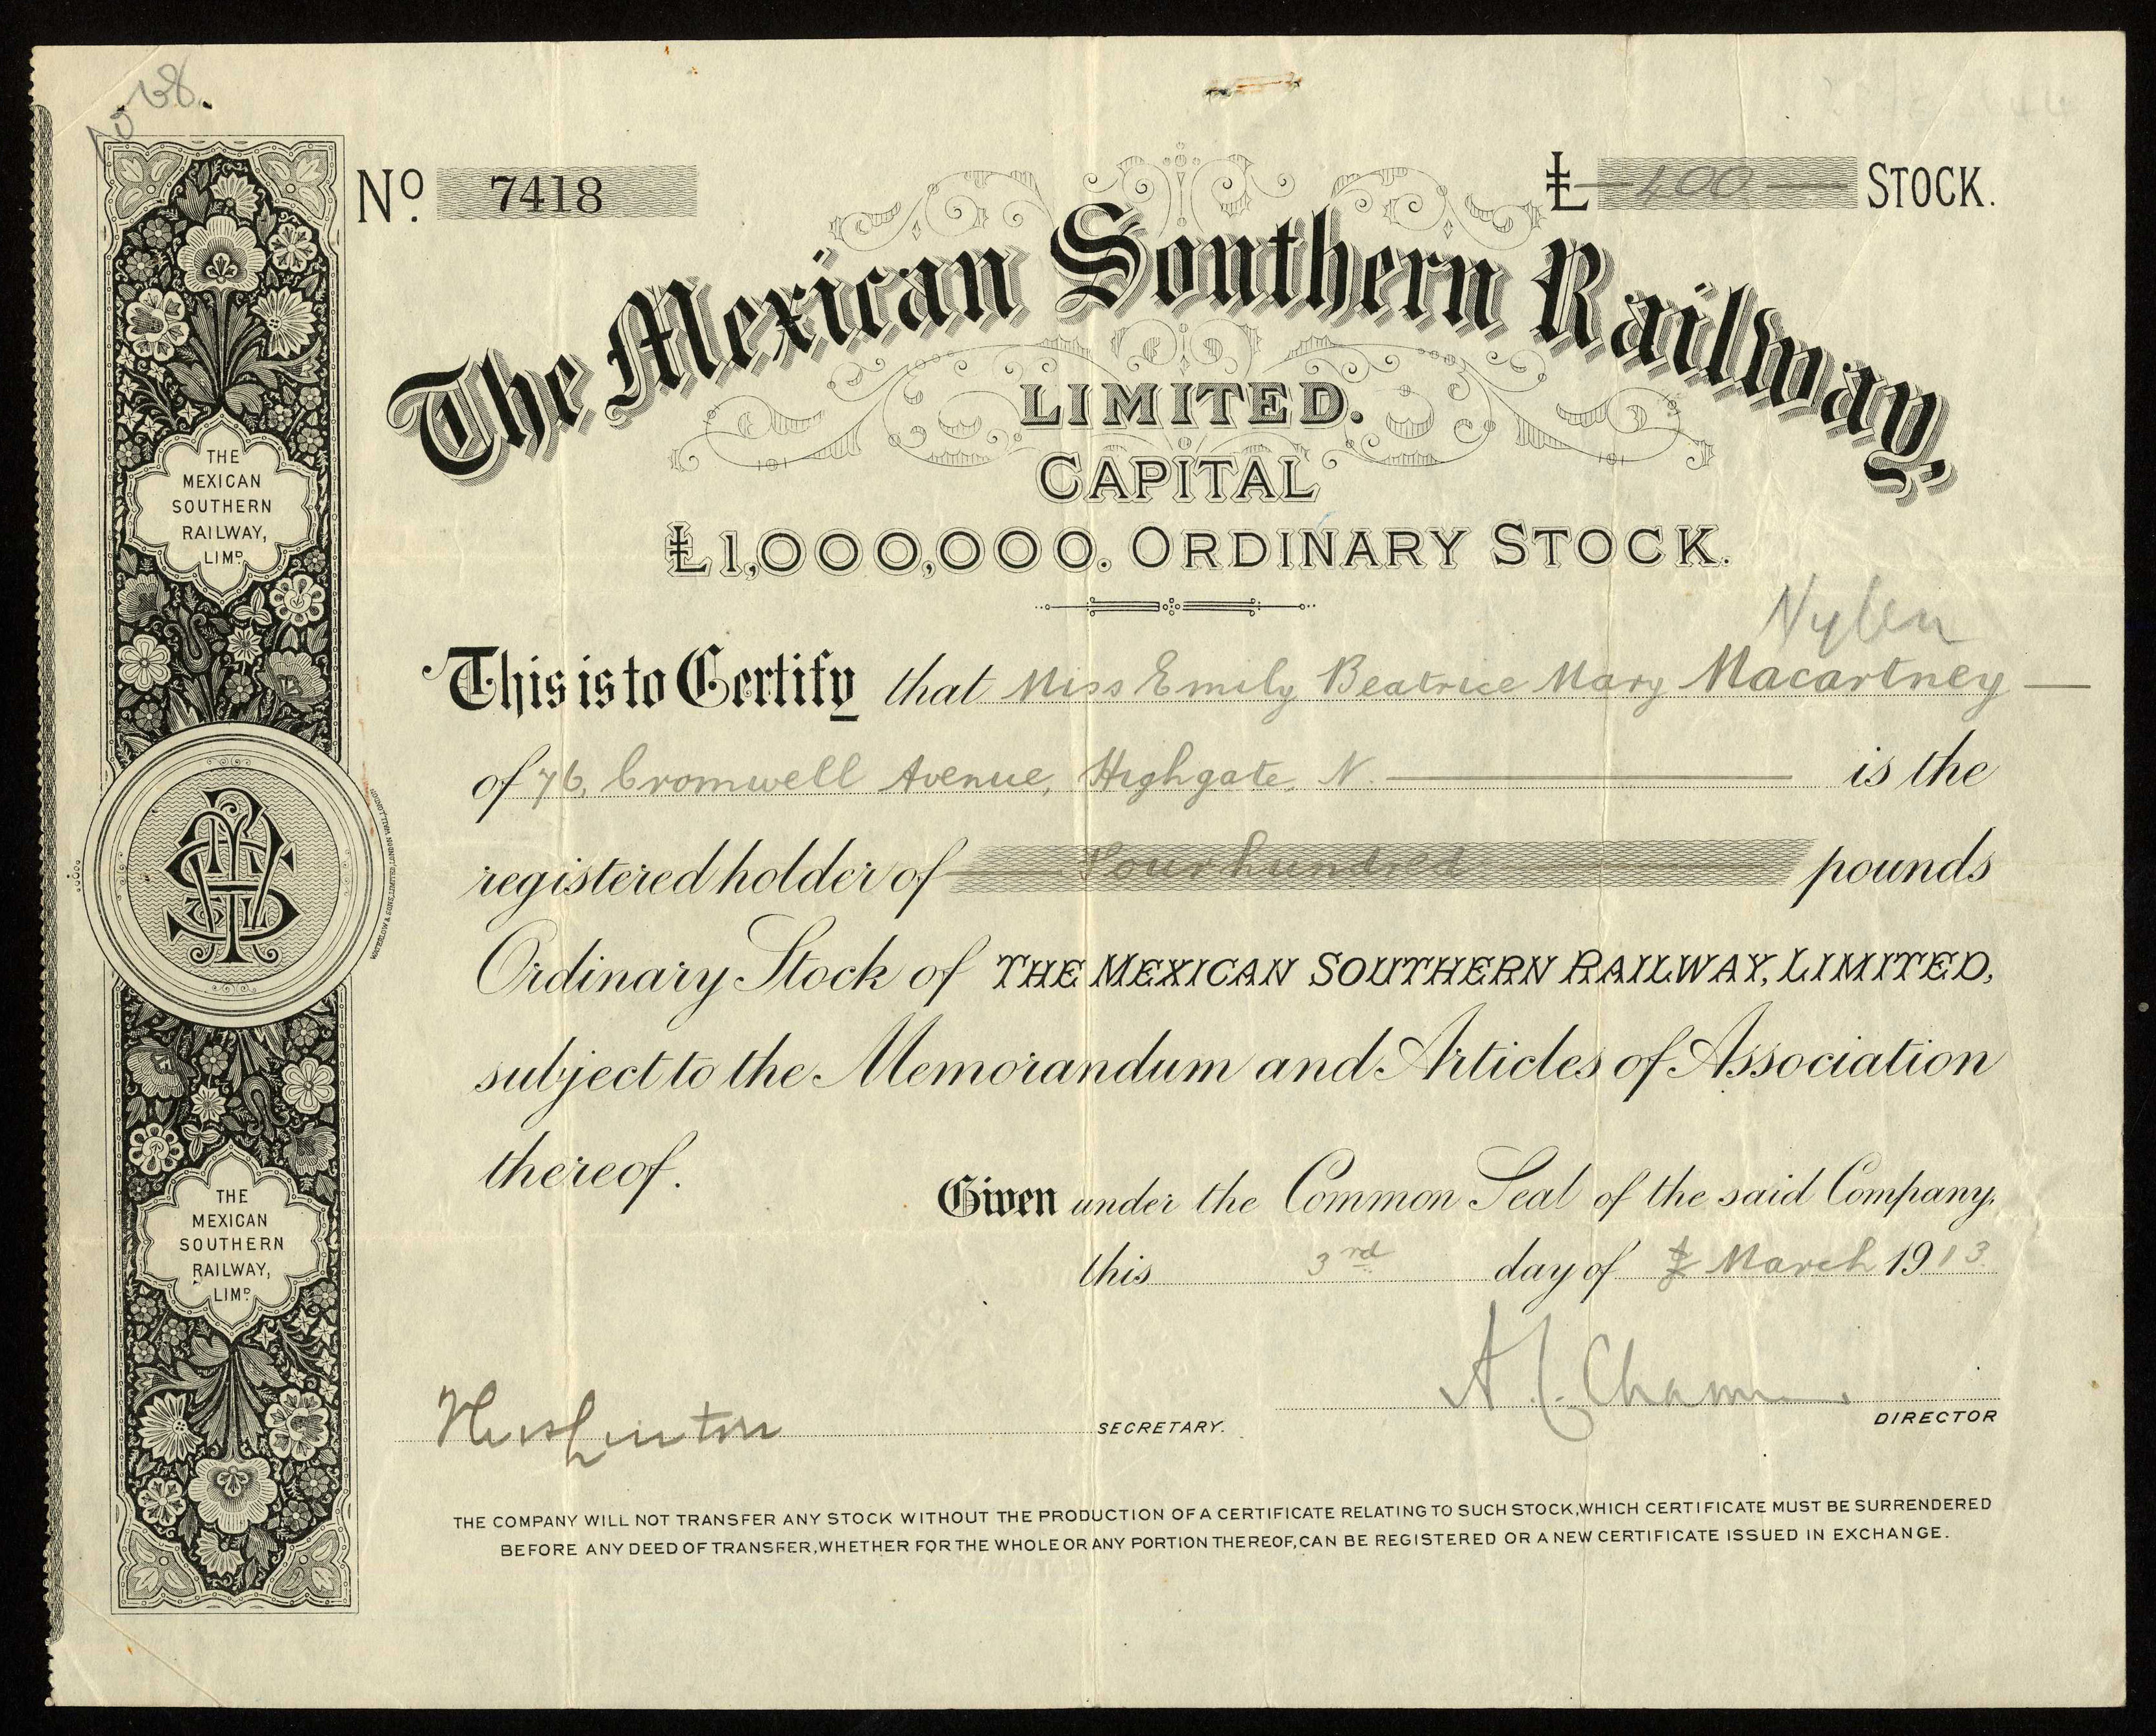 No. 7418
£ 400 STOCK.
The Mexican Southern Railway,
LIMITED.
CAPITAL
£1,000,000. ORDINARY STOCK.
THE
MEXICAN
SOUTHERN
RAILWAY,
LIMD.
This is to Certify that Miss Emily Beatrice Mary Macartney
of 76, Cromwell Avenue, Highgate, N. is the
registered holder of Four hundred pounds
Ordinary Stock of THE MEXICAN SOUTHERN RAILWAY, LIMITED,
subject to the Memorandum and Articles of Association
thereof.
Given under the Common Seal of the said Company,
this 3rd day of March 1913.
THE
MEXICAN
SOUTHERN
RAILWAY,
LIMD.
SECRETARY.
DIRECTOR
THE COMPANY WILL NOT TRANSFER ANY STOCK WITHOUT THE PRODUCTION OF A CERTIFICATE RELATING TO SUCH STOCK, WHICH CERTIFICATE MUST BE SURRENDERED
BEFORE ANY DEED OF TRANSFER, WHETHER FOR THE WHOLE OR ANY PORTION THEREOF, CAN BE REGISTERED OR A NEW CERTIFICATE ISSUED IN EXCHANGE.